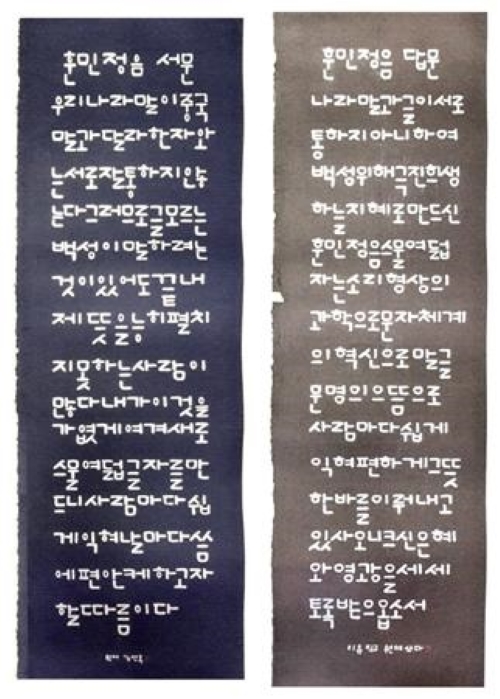 훈민정음 서문
우리나라말이중국
말과달라한자와
는서로잘통하지않
는다그러므로글모르는
백성이말하려는
것이있어도끝내
제뜻을능히펼치
지못하는사람이
많다내가이것을
가엾게여겨새로
스물여덟글자를만
드니사람마다쉽
게익혀날마다씀
에편안케하고자
할따름이다
훈민정음 답문
나라말과글이서로
통하지아니하여
백성위해극진희생
하늘지혜로만드신
훈민정음스물여덟
자는소리형상의
과학으로문자체계
의혁신으로말글
문명의으뜸으로
사람마다쉽게
익혀편하게그뜻
한바를이뤄내고
있사오니크신은혜
와영광을세세
토록받으옵소서